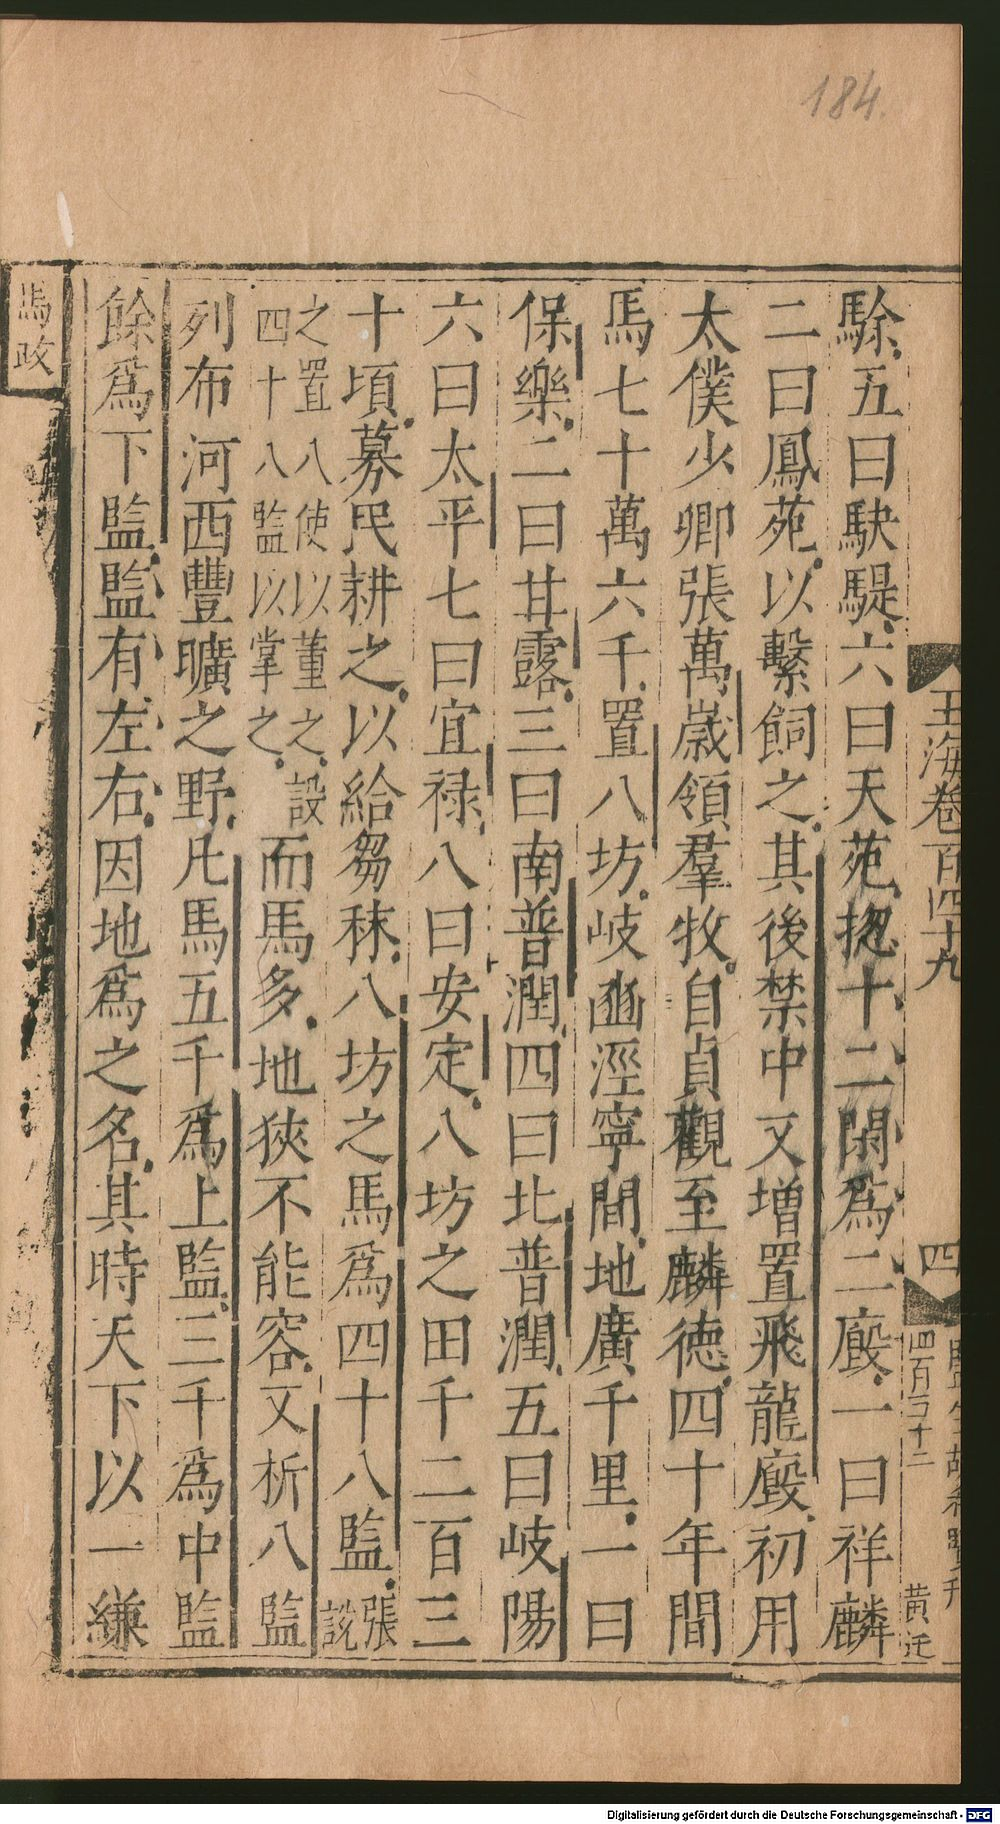 184.
玉海卷百四十九
四
四百六十二
黄
駼五曰駃騠六曰天苑揔十二閑爲二廄一曰祥麟
二曰鳳苑以繫飼之其後禁中又增置飛龍廄初用
太僕少卿張萬歲領羣牧自貞觀至麟德四十年間
馬七十萬六千置八坊岐豳涇寧間地廣千里一曰
保樂二曰甘露三曰南普潤四曰北普潤五曰岐陽
六曰太平七曰宜禄八曰安定八坊之田千二百三
十頃募民耕之以給芻秣八坊之馬爲四十八監張說
之置八使以董之設四十八監以掌之而馬多地狹不能容又析八監
列布河西豐曠之野凡馬五千爲上監三千爲中監
餘爲下監監有左右因地爲之名其時天下以一縑
馬政
Digitalisierung gefördert durch die Deutsche Forschungsgemeinschaft - DFG